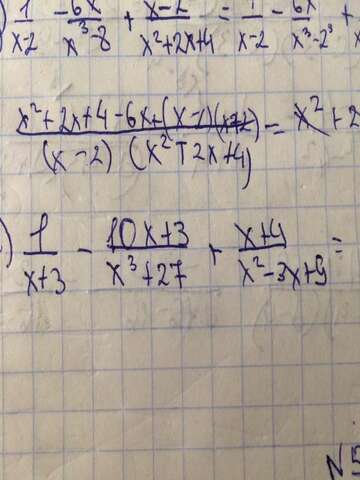 ) 1/x-2 -6x/x³-8 + x-2/x²+2x+4 = 1/x-2 - 6x/x³-2³ +
x²+2x+4-6x+(x-2)(x+2)/(x-2)(x²+2x+4) = x²+2
) 1/x+3 - 10x+3/x³+27 + x+4/x²-3x+9 =
N5